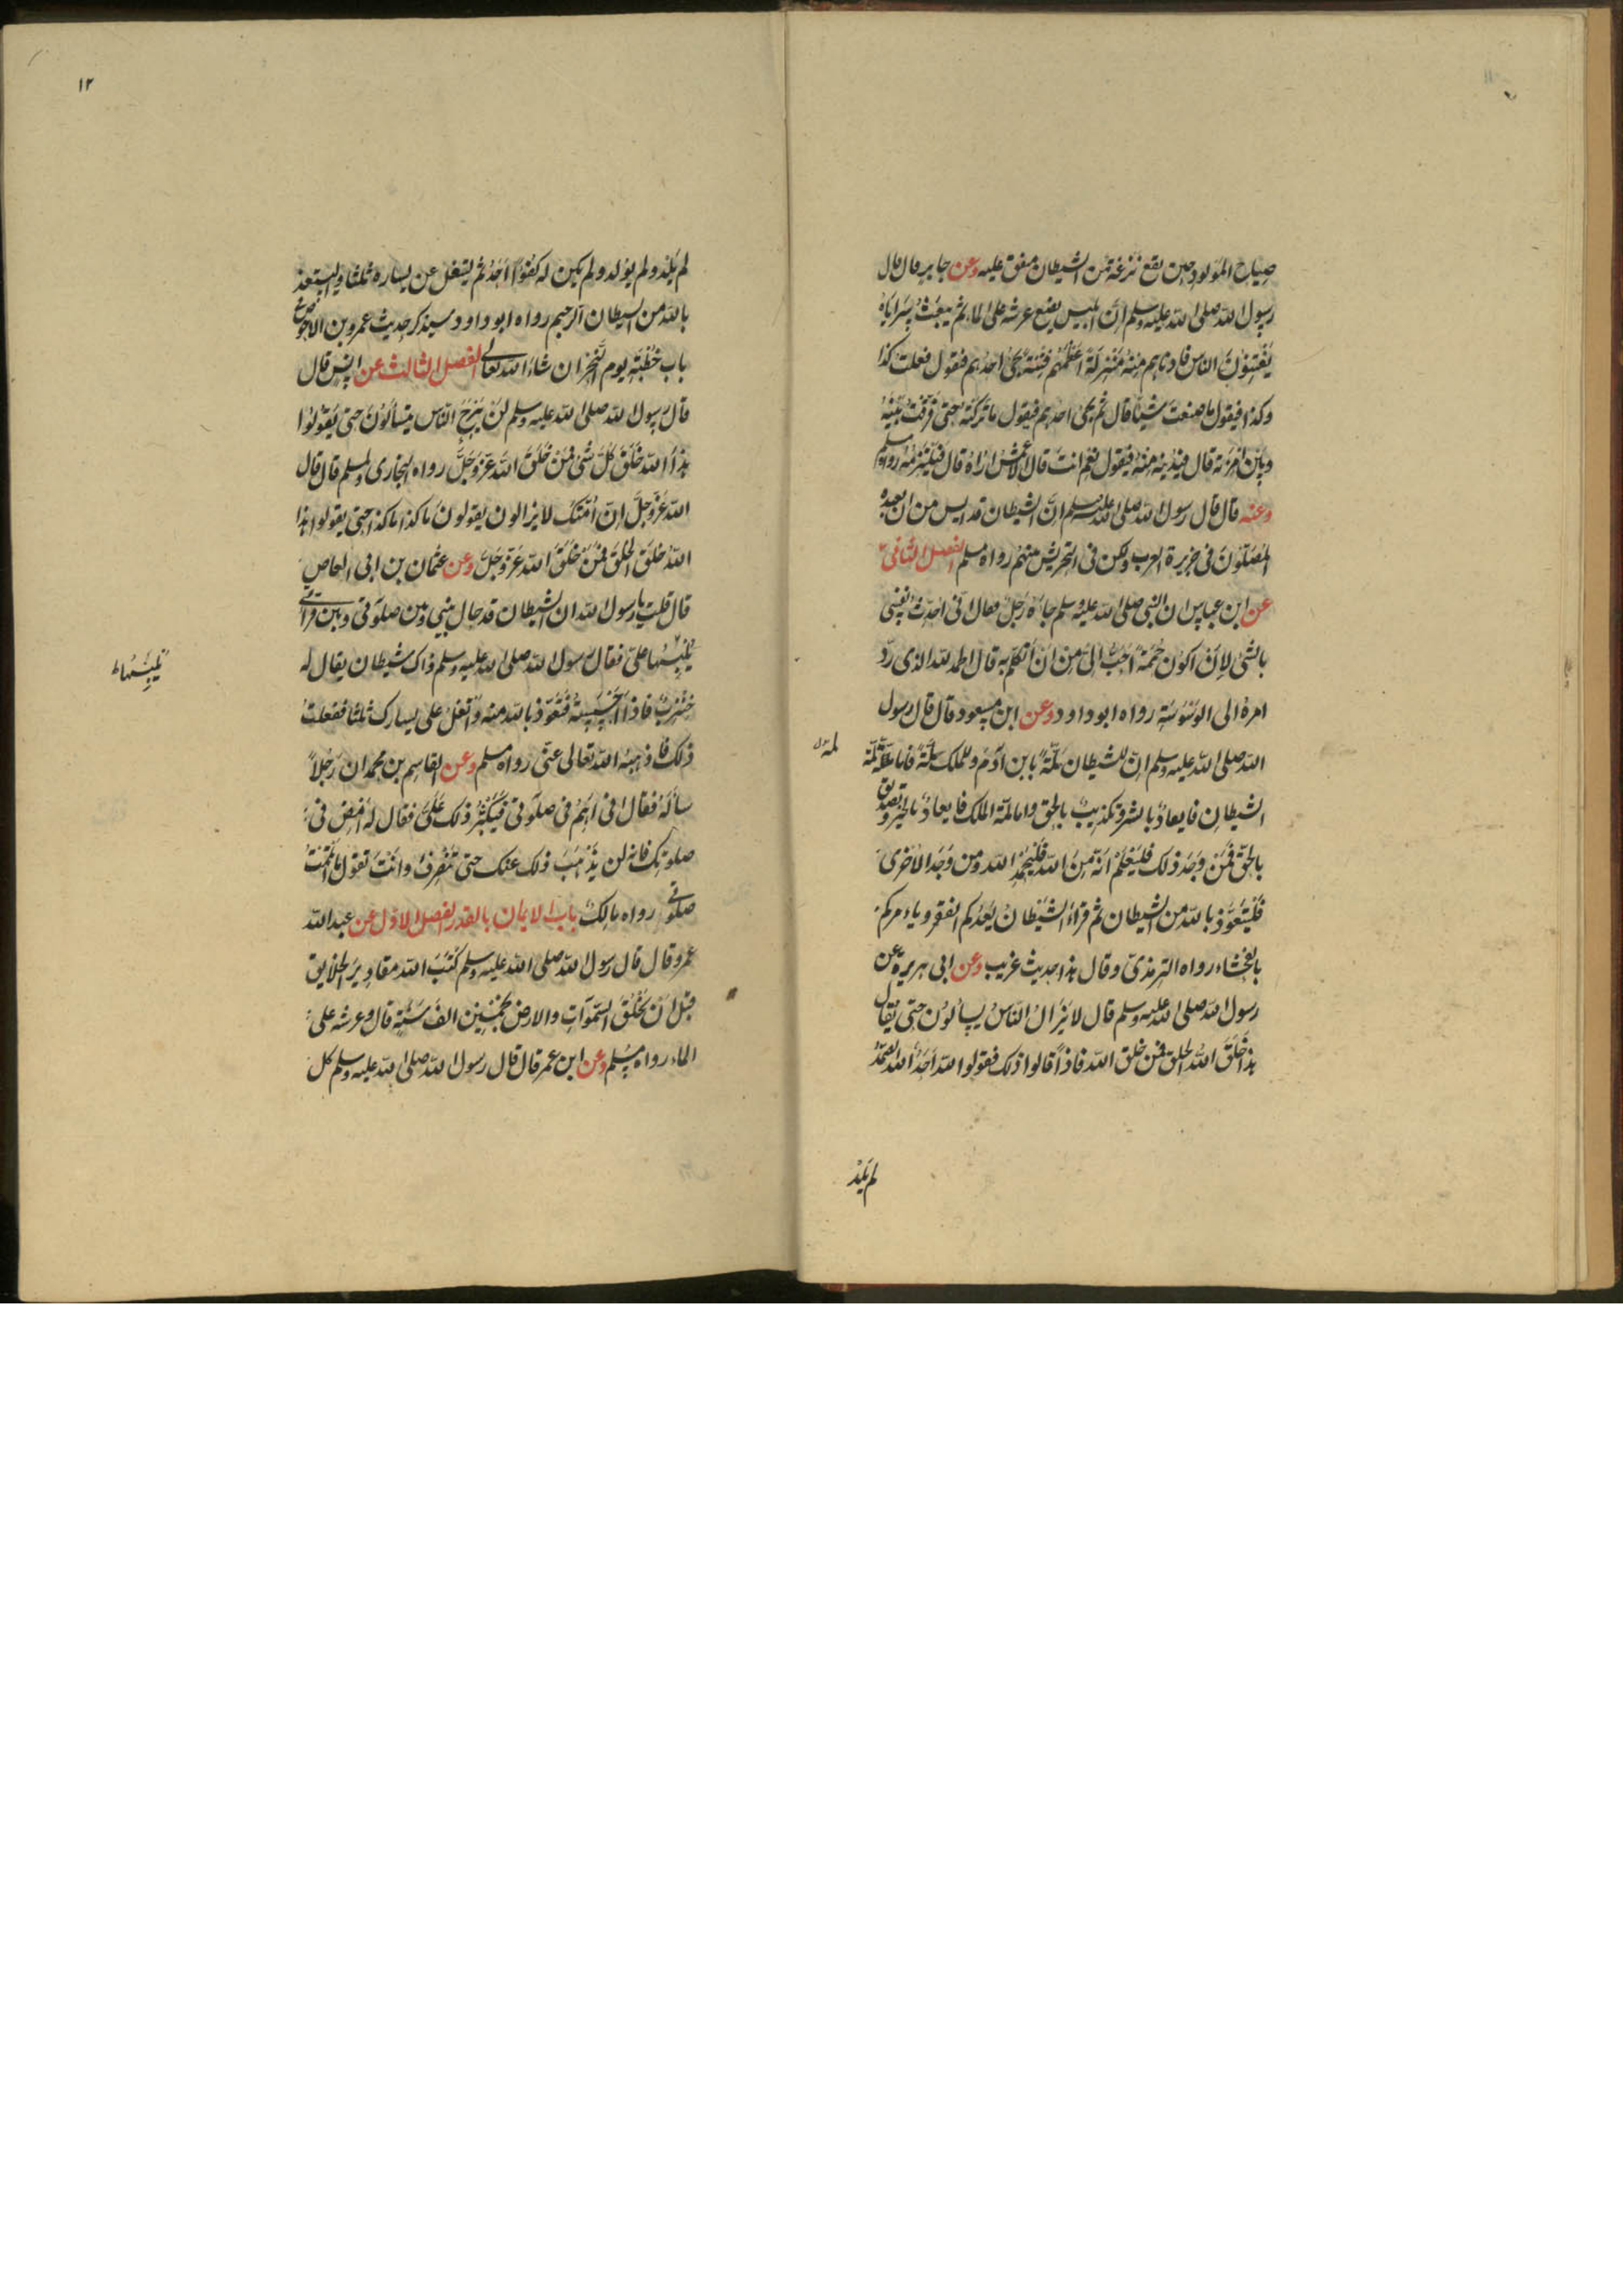 ١١
صياح المولود حين يقع نزغة من الشيطان متفق عليه وعن جابر قال قال
رسول الله صلى الله عليه وسلم ان ابليس يضع عرشه على الماء ثم يبعث سراياه
يفتنون الناس فادناهم منه منزلة اعظمهم فتنة يجئ احدهم فيقول فعلت كذا
وكذا فيقول ما صنعت شيئا قال ثم يجئ احدهم فيقول ما تركته حتى فرقت بينه
وبين امرءته قال فيدنيه منه فيقول نعم انت قال الاعمش اراه قال فيلتزمه رواه مسلم
وعنه قال قال رسول الله صلى الله عليه وسلم ان الشيطان قد ايس من ان يعبده
المصلون في جزيرة العرب ولكن في التحريش بينهم رواه مسلم الفصل الثاني
عن ابن عباس ان النبي صلى الله عليه وسلم جاءه رجل فقال اني احدث نفسي
بالشئ لان اكون حممة احب الى من ان اتكلم به قال الحمد لله الذى رد
امره الى الوسوسة رواه ابو داود وعن ابن مسعود قال قال رسول
الله صلى الله عليه وسلم ان للشيطان لمة بابن آدم وللملك لمة فاما لمة
الشيطان فايعاد بالشر وتكذيب بالحق واما لمة الملك فايعاد بالخير وتصديق
بالحق فمن وجد ذلك فليعلم انه من الله فليحمد الله ومن وجد الاخرى
فليتعوذ بالله من الشيطان ثم قراء الشيطان يعدكم الفقر وياءمركم
بالفحشاء رواه الترمذي وقال هذا حديث غريب وعن ابى هريرة عن
رسول الله صلى الله عليه وسلم قال لا يزال الناس يسألون حتى يقال
هذا خلق الله الخلق فمن خلق الله فاذا قالوا ذلك فقولوا الله احد الله الصمد
لم يلد
١٢
لم يلد ولم يولد ولم يكن له كفوا احد ثم ليتفل عن يساره ثلثا وليستعذ
بالله من الشيطان الرجيم رواه ابو داود وسيذكر حديث عمرو بن الاحوص في
باب خطبة يوم النحر ان شاء الله تعالى الفصل الثالث عن انس قال
قال رسول الله صلى الله عليه وسلم لن يبرح الناس يتسألون حتى يقولوا
هذا الله خلق كل شئ فمن خلق الله عز وجل رواه البخارى ولمسلم قال قال
الله عز وجل ان امتك لا يزالون يقولون ما كذا ما كذا حتى يقولوا هذا
الله خلق الخلق فمن خلق الله عز وجل وعن عثمان بن ابى العاص
قال قلت يا رسول الله ان الشيطان قد حال بيني وبين صلوتي وبين قراءتي
يلبسها على فقال رسول الله صلى الله عليه وسلم ذاك شيطان يقال له
يلبسها ط
خنزب فاذا احسسته فتعوذ بالله منه واتفل على يسارك ثلثا ففعلت
ذلك فاذهبه الله تعالى عنى رواه مسلم وعن القاسم بن محمد ان رجلا
سأله فقال انى اهم فى صلوتى فيكثر ذلك على فقال له امض فى
صلوتك فانه لن يذهب ذلك عنك حتى تنصرف وانت تقول ما اتممت
صلوتى رواه مالك باب الايمان بالقدر الفصل الاول عن عبد الله
عمرو قال قال رسول الله صلى الله عليه وسلم كتب الله مقادير الخلايق
قبل ان يخلق السموات والارض بخمسين الف سنة قال وعرشه على
الماء رواه مسلم وعن ابن عمر قال قال رسول الله صلى الله عليه وسلم كل